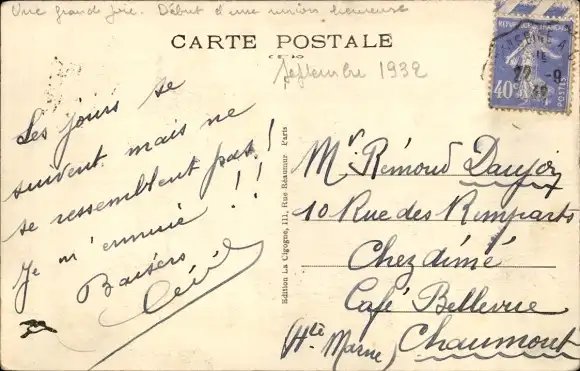 Une grande joie. Début d'une union heureuse
CARTE POSTALE
Septembre 1932
RÉPUBLIQUE FRANÇAISE
40c
POSTES
22 - 9
32
Les jours se
suivent mais ne
se ressemblent pas!
Je m'ennuie !!
Baisers
Edition La Cigogne, 111, Rue Réaumur Paris
Mr. Rémond
10 Rue des Remparts
Chez dimé
Café Bellevue
(Hte Marne) Chaumont